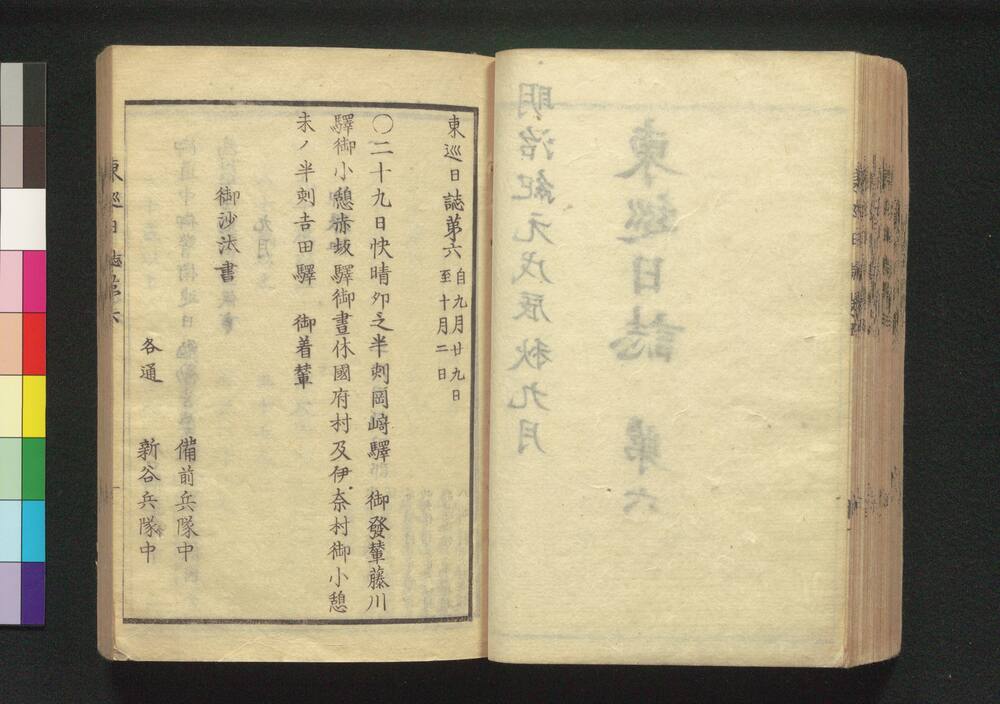 明治紀元戊辰秋九月
東巡日誌 第六
東巡日誌第六 自九月廿九日
至十月二日
〇二十九日快晴卯之半刻岡﨑驛 御發輦藤川
驛御小憩赤坂驛御晝休國府村及伊奈村御小憩
未ノ半刻吉田驛 御着輦
御沙汰書
備前兵隊中
各通 新谷兵隊中
東巡日誌第六